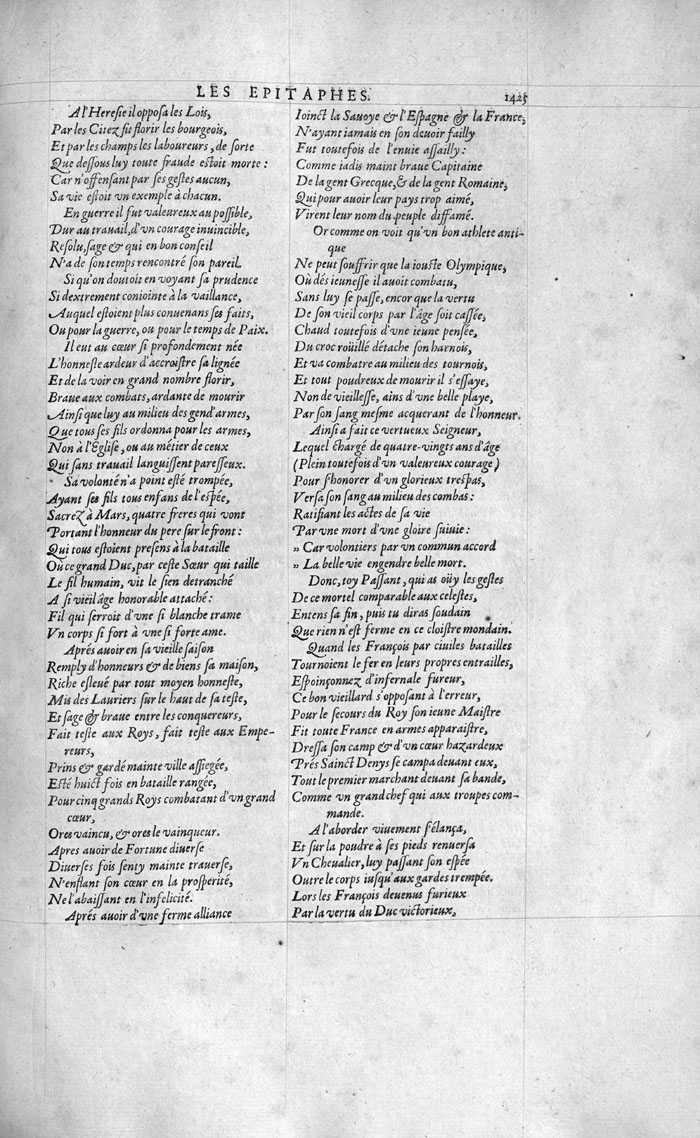 LES EPITAPHES.
1425
A l'Heresie il opposa les Lois,
Par les Citez fit florir les bourgeois,
Et par les champs les laboureurs, de sorte
Que dessous luy toute fraude estoit morte:
Car n'offensant par ses gestes aucun,
Sa vie estoit vn exemple à chacun.
En guerre il fut valeureux au possible,
Dur au trauail, d'vn courage inuincible,
Resolu, sage & qui en bon conseil
N'a de son temps rencontré son pareil.
Si qu'on doutoit en voyant sa prudence
Si dextrement coniointe à la vaillance,
Auquel estoient plus conuenans ses faits,
Ou pour la guerre, ou pour le temps de Paix.
Il eut au cœur si profondement née
L'honneste ardeur d'accroistre sa lignée
Et de la voir en grand nombre florir,
Braue aux combats, ardante de mourir
Ainsi que luy au milieu des gend'armes,
Que tous ses fils ordonna pour les armes,
Non à l'Eglise, ou au métier de ceux
Qui sans trauail languissent paresseux.
Sa volonté n'a point esté trompée,
Ayant ses fils tous enfans de l'espée,
Sacrez à Mars, quatre freres qui vont
Portant l'honneur du pere sur le front:
Qui tous estoient presens à la bataille
Où ce grand Duc, par ceste Sœur qui taille
Le fil humain, vit le sien detranché
A si vieil âge honorable attaché:
Fil qui serroit d'vne si blanche trame
Vn corps si fort à vne si forte ame.
Aprés auoir en sa vieille saison
Remply d'honneurs & de biens sa maison,
Riche esleué par tout moyen honneste,
Mis des Lauriers sur le haut de sa teste,
Et sage & braue entre les conquereurs,
Fait teste aux Roys, fait teste aux Empe-
reurs,
Prins & gardé mainte ville assiegée,
Esté huict fois en bataille rangée,
Pour cinq grands Roys combatant d'vn grand
cœur,
Ores vaincu, & ores le vainqueur.
Apres auoir de Fortune diuerse
Diuerses fois senty mainte trauerse,
N'enflant son cœur en la prosperité,
Ne l'abaissant en l'infelicité.
Aprés auoir d'vne ferme alliance
Ioinct la Sauoye & l'Espagne & la France,
N'ayant iamais en son deuoir failly
Fut toutefois de l'enuie assailly:
Comme iadis maint braue Capitaine
De la gent Grecque, & de la gent Romaine,
Qui pour auoir leur pays trop aimé,
Virent leur nom du peuple diffamé.
Or comme on voit qu'vn bon athlete anti-
que
Ne peut souffrir que la iouste Olympique,
Où dés ieunesse il auoit combatu,
Sans luy se passe, encor que la vertu
De son vieil corps par l'âge soit cassée,
Chaud toutefois d'vne ieune pensée,
Du croc roüillé détache son harnois,
Et va combatre au milieu des tournois,
Et tout poudreux de mourir il s'essaye,
Non de vieillesse, ains d'vne belle playe,
Par son sang mesme acquerant de l'honneur.
Ainsi a fait ce vertueux Seigneur,
Lequel chargé de quatre-vingts ans d'âge
(Plein toutefois d'vn valeureux courage)
Pour s'honorer d'vn glorieux trespas,
Versa son sang au milieu des combas:
Ratifiant les actes de sa vie
Par vne mort d'vne gloire suiuie:
» Car volontiers par vn commun accord
» La belle vie engendre belle mort.
Donc, toy Passant, qui as oüy les gestes
De ce mortel comparable aux celestes,
Entens sa fin, puis tu diras soudain
Que rien n'est ferme en ce cloistre mondain.
Quand les François par ciuiles batailles
Tournoient le fer en leurs propres entrailles,
Espoinçonnez d'infernale fureur,
Ce bon vieillard s'opposant à l'erreur,
Pour le secours du Roy son ieune Maistre
Fit toute France en armes apparaistre,
Dressa son camp & d'vn cœur hazardeux
Prés Sainct Denys se campa deuant eux,
Tout le premier marchant deuant sa bande,
Comme vn grand chef qui aux troupes com-
mande.
A l'aborder viuement s'élança,
Et sur la poudre à ses pieds renuersa
Vn Cheualier, luy passant son espée
Outre le corps iusqu'aux gardes trempée.
Lors les François deuenus furieux
Par la vertu du Duc victorieux,